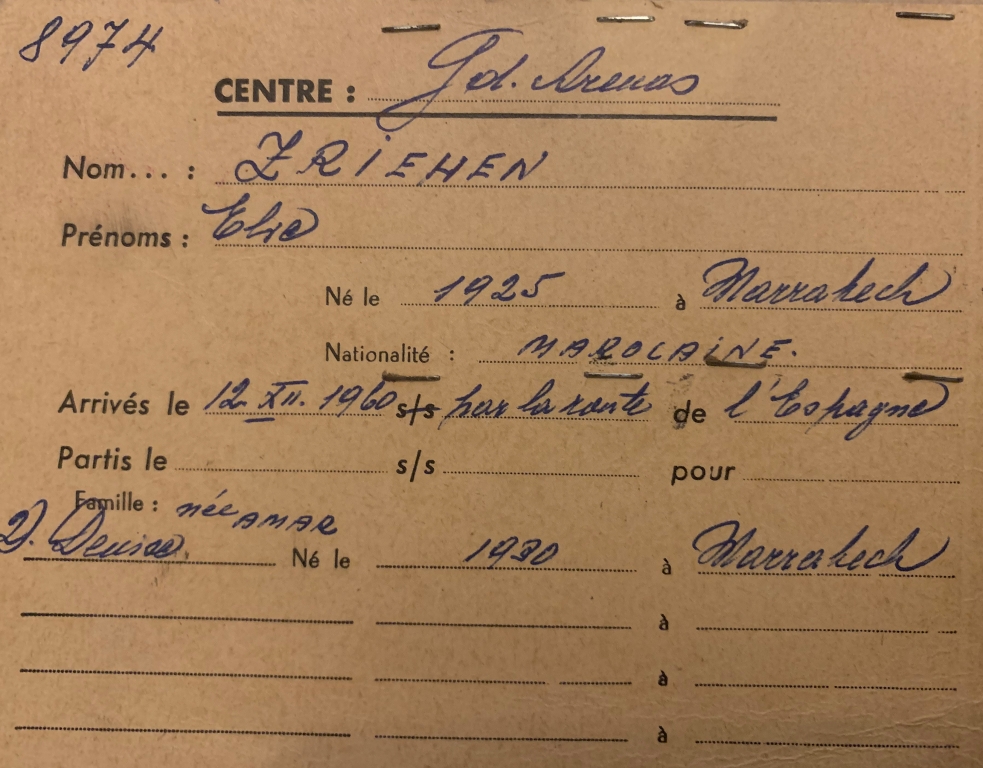 8974
CENTRE : Gd. Arenas
Nom... : ZRIEHEN
Prénoms : Elie
Né le 1925 à Marrakech
Nationalité : MAROCAINE.
Arrivés le 12 XII. 1960 s/s par la route de l'Espagne
Partis le s/s pour
Famille : née AMAR
2). Denise. Né le 1930 à Marrakech
à
à
à